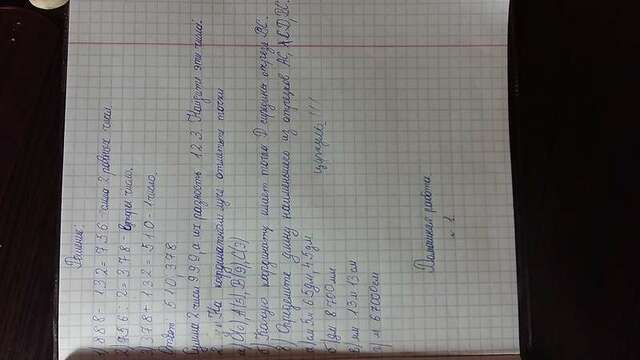 Решение:
1) 888 - 132 = 756 - сумма 2 равных чисел.
2) 756 : 2 = 378 - второе число.
3) 378 + 132 = 510 - 1 число.
Ответ 510, 378
Сумма 2 чисел 999, а их разность 123. Найдите эти числа.
2. На координатном луче отметьте точки
а) O(0), A(5), B(9), C(3)
б) Какую координату имеет точка D середины отрезка BC.
в) Определите длину наименьшего из отрезков AC, CD, BC.
а) см 5м 65дм, 45дм
б) дм 8700мм
в) мм 13м 13см
г) м 67000см
!!!
Домашняя работа
№ 1.